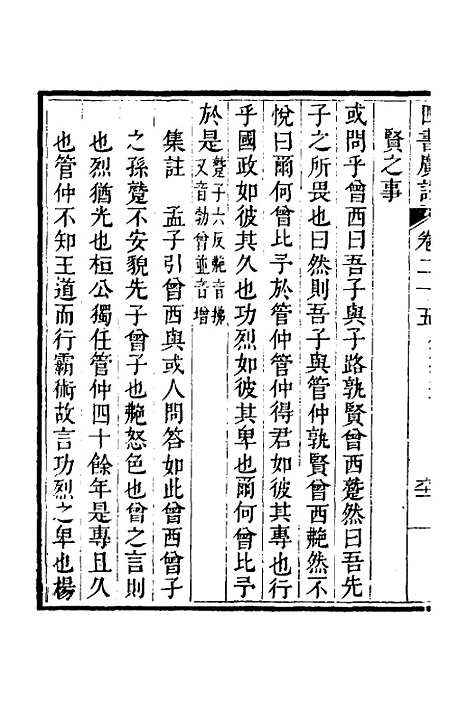 四書廣註 卷二十五
賢之事
或問乎曾西曰吾子與子路孰賢曾西蹵然曰吾先
子之所畏也曰然則吾子與管仲孰賢曾西艴然不
悅曰爾何曾比予於管仲管仲得君如彼其專也行
乎國政如彼其久也功烈如彼其卑也爾何曾比予
於是蹵子六反艴音拂
又音勃曾並音增
集註 孟子引曾西與或人問答如此曾西曾子
之孫蹵不安貌先子曾子也艴怒色也曾之言則
也烈猶光也桓公獨任管仲四十餘年是專且久
也管仲不知王道而行霸術故言功烈之卑也楊